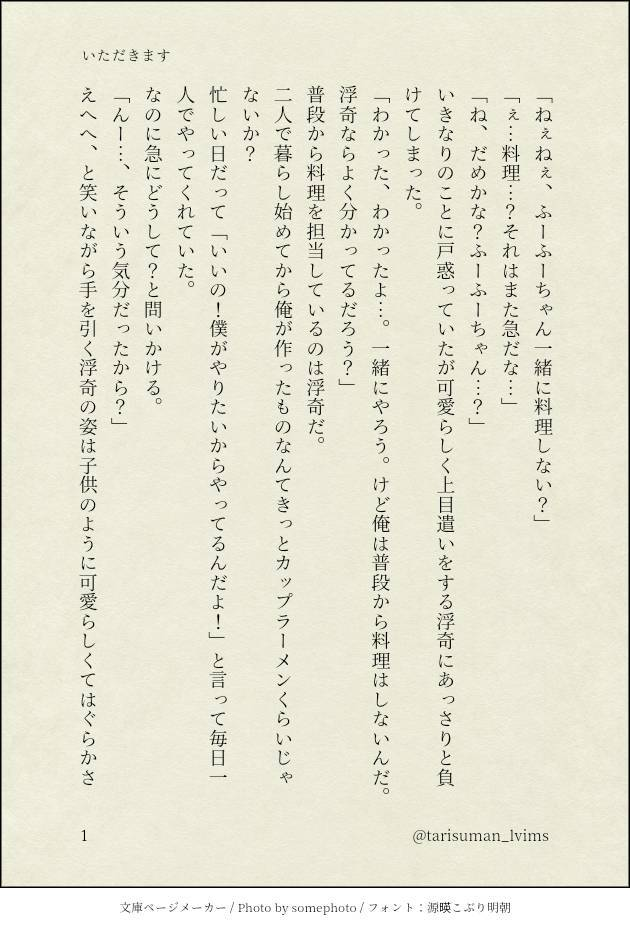 いただきます
「ねぇねぇ、ふーふーちゃん一緒に料理しない？」
「ぇ…料理…？それはまた急だな…」
「ね、だめかな？ふーふーちゃん…？」
いきなりのことに戸惑っていたが可愛らしく上目遣いをする浮奇にあっさりと負
けてしまった。
「わかった、わかったよ…。一緒にやろう。けど俺は普段から料理はしないんだ。
浮奇ならよく分かってるだろう？」
普段から料理を担当しているのは浮奇だ。
二人で暮らし始めてから俺が作ったものなんてきっとカップラーメンくらいじゃ
ないか？
忙しい日だって「いいの！僕がやりたいからやってるんだよ！」と言って毎日一
人でやってくれていた。
なのに急にどうして？と問いかける。
「んー…、そういう気分だったから？」
えへへ、と笑いながら手を引く浮奇の姿は子供のように可愛らしくてはぐらかさ
1
@tarisuman_lvims
文庫ページメーカー / Photo by somephoto / フォント：源暎こぶり明朝